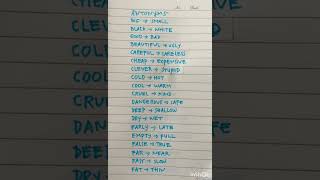 ANTONYMS:
BIG → SMALL
BLACK → WHITE
GOOD → BAD
BEAUTIFUL → UGLY
CAREFUL → CARELESS
CHEAP → EXPENSIVE
CLEVER → STUPID
COLD → HOT
COOL → WARM
CRUEL → KIND
DANGEROUS → SAFE
DEEP → SHALLOW
DRY → WET
EARLY → LATE
EMPTY → FULL
FALSE → TRUE
FAR → NEAR
FAST → SLOW
FAT → THIN